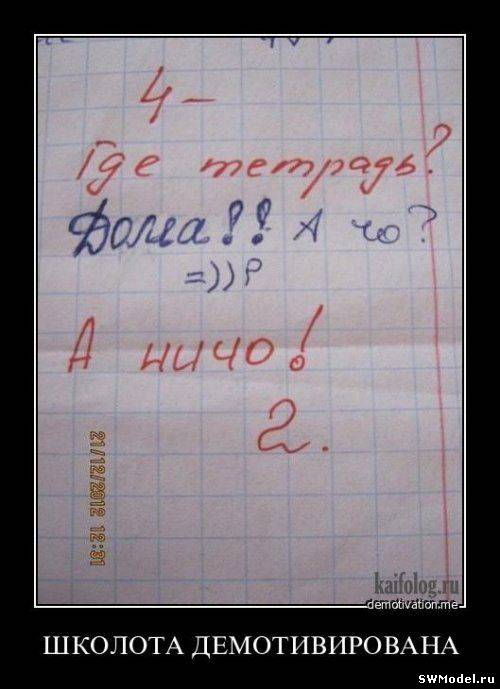 4-
Где тетрадь?
Дома!! А чо?
=))Р
А ничо!
2.
21/12/2012 12:31
kaifolog.ru
demotivation.me
ШКОЛОТА ДЕМОТИВИРОВАНА
SWModel.ru